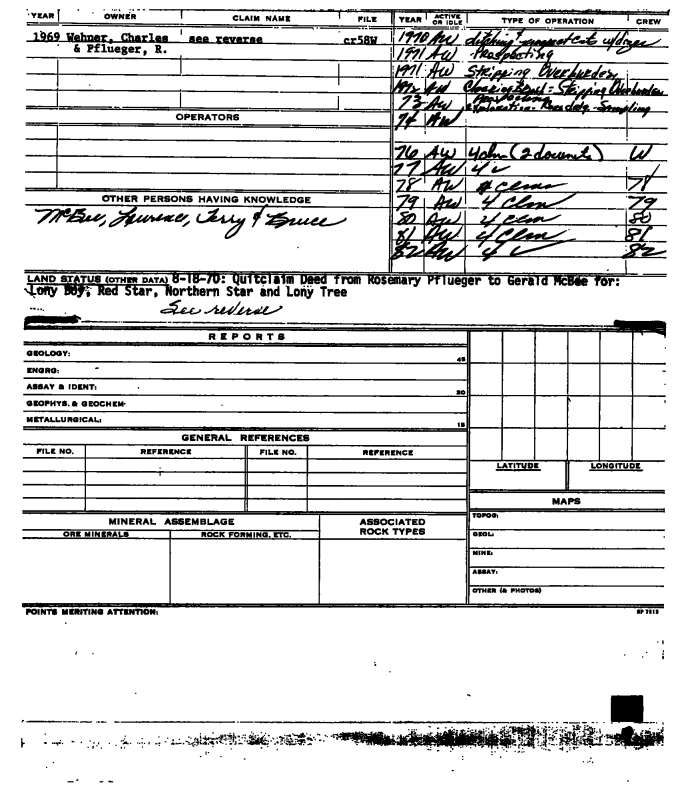 YEAR OWNER CLAIM NAME FILE
1969 Wehner, Charles see reverse cr58W
& Pflueger, R.
OPERATORS
OTHER PERSONS HAVING KNOWLEDGE
McBee, Lawrence, Jerry & Bruce
YEAR ACTIVE OR IDLE TYPE OF OPERATION CREW
1970 AW Ditching & cuts w/dozer
1971 AW Prospecting
1971 AW Stripping Overburden
1972 AW Stripping Overburden
73 AW Sampling
74 AW
76 AW 4 clm (2 documents) W
77 AW 4 ✓
78 AW 4 clms 78
79 AW 4 clm 79
80 AW 4 clm 80
81 AW 4 clm 81
82 AW 4 ✓ 82
LAND STATUS (OTHER DATA) 8-18-70: Quitclaim Deed from Rosemary Pflueger to Gerald McBee for:
Lony Boy, Red Star, Northern Star and Lony Tree
See reverse
REPORTS
GEOLOGY: 45
ENGRG:
ASSAY & IDENT: 30
GEOPHYS. & GEOCHEM-
METALLURGICAL: 15
GENERAL REFERENCES
FILE NO. REFERENCE FILE NO. REFERENCE
LATITUDE LONGITUDE
MAPS
TOPOG:
GEOL:
MINE:
ASSAY:
OTHER (& PHOTOS)
MINERAL ASSEMBLAGE ASSOCIATED
ORE MINERALS ROCK FORMING, ETC. ROCK TYPES
POINTS MERITING ATTENTION: